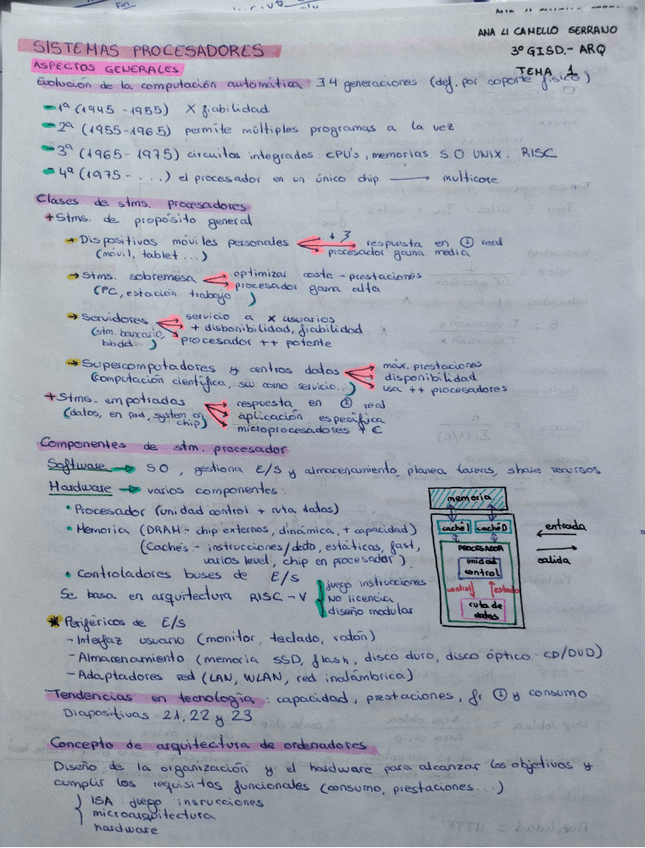 ANA LI CAMELLO SERRANO
3º GISD.- ARQ
TEMA 1
SISTEMAS PROCESADORES
ASPECTOS GENERALES
Evolución de la computación automática ∃ 4 generaciones (def. por soporte físico)
1ª (1945-1955) X fiabilidad
2ª (1955-1965) permite múltiples programas a la vez
3ª (1965-1975) circuitos integrados: CPU's, memorias S.O UNIX. RISC
4ª (1975-...) el procesador en un único chip → multicore
Clases de stms. procesadores
+ Stms. de propósito general
→ Dispositivos móviles personales
(móvil, tablet...)
respuesta en real
procesador gama media
→ Stms. sobremesa
(PC, estación trabajo...)
optimizar coste-prestaciones
procesador gama alta
→ Servidores
(stm. bancario,
bbdd...)
servicio a x usuarios
+ disponibilidad, fiabilidad
procesador ++ potente
→ Supercomputadores y centros datos
(computación científica, sw como servicio...)
máx. prestaciones
disponibilidad
usa ++ procesadores
+ Stms. empotrados
(datos, en red, system on
chip)
respuesta en real
aplicación específica
microprocesadores + €
Componentes de stm. procesador
Software → SO, gestiona E/S y almacenamiento, planea tareas, share recursos
Hardware → varios componentes:
• Procesador (unidad control + ruta datos)
• Memoria (DRAM - chip externos, dinámica, + capacidad)
(Cachés - instrucciones/dato, estáticas, fast,
varios level, chip en procesador)
• Controladores buses de E/S
Se basa en arquitectura RISC-V
juego instrucciones
NO licencia
diseño modular
memoria
caché I caché D
PROCESADOR
unidad
control
control estado
ruta de
datos
entrada
salida
* Periféricos de E/S
- Interfaz usuario (monitor, teclado, ratón)
- Almacenamiento (memoria SSD, flash, disco duro, disco óptico-CD/DVD)
- Adaptadores red (LAN, WLAN, red inalámbrica)
Tendencias en tecnología: capacidad, prestaciones, fr y consumo
Diapositivas 21, 22 y 23
Concepto de arquitectura de ordenadores
Diseño de la organización y el hardware para alcanzar los objetivos y
cumplir los requisitos funcionales (consumo, prestaciones...)
ISA: juego insrucciones
microarquitectura
hardware